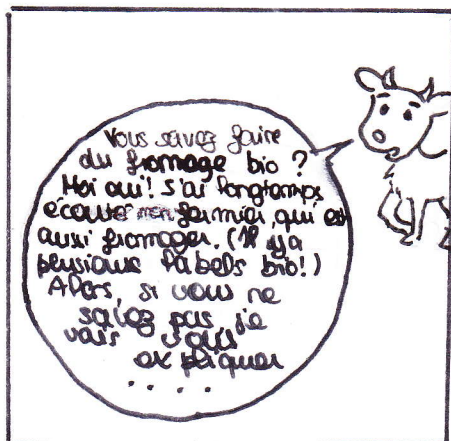 Vous savez faire
du fromage bio ?
Moi oui! J'ai longtemps
écouter mon fermier, qui est
aussi fromager. (Il y a
plusieurs labels bio!)
Alors, si vous ne
savez pas je
vais vous
expliquer
....